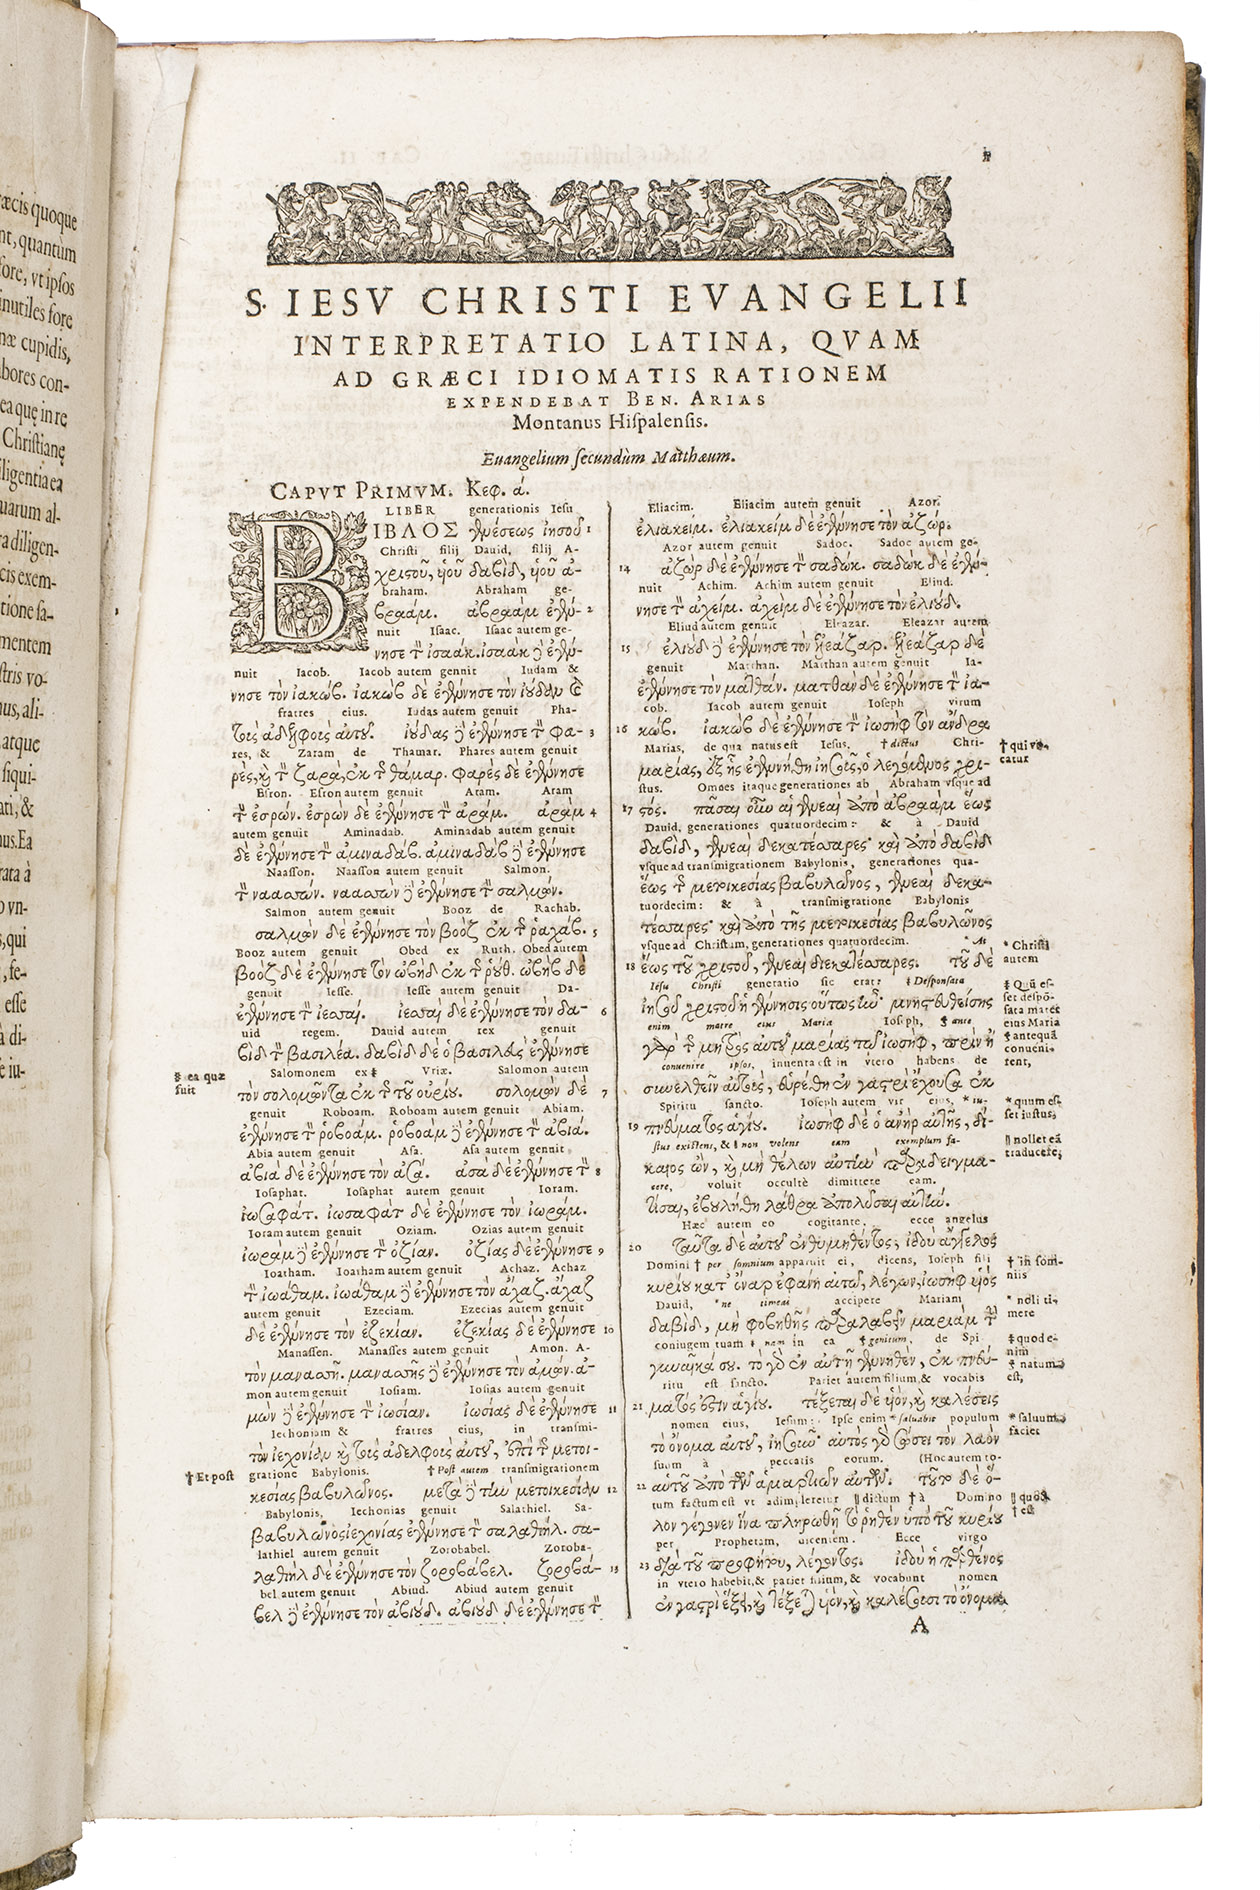 ræcis quoque
nt, quantùm
fore, vt ipsos
inutiles fore
næ cupidis,
bores con-
ea quę in re
Christianę
iligentia ea
uarum al-
ra diligen-
cis exem-
tione sa-
mentem
stris vo-
nus, ali-
atque
siqui-
ati, &
nus. Ea
rata à
o vn-
s, qui
, fe-
esse
à di-
e iu-
S. IESV CHRISTI EVANGELII
INTERPRETATIO LATINA, QVAM
AD GRÆCI IDIOMATIS RATIONEM
EXPENDEBAT BEN. ARIAS
Montanus Hispalensis.
Euangelium secundùm Matthæum.
CAPVT PRIMVM. Κεφ. ά.
LIBER generationis Iesu
ΒΙΒΛΟΣ γενέσεως ἰησοῦ 1
Christi filij Dauid, filij A-
χριστοῦ, ὑιοῦ δαβὶδ, ὑιοῦ ἀ-
braham. Abraham ge-
βραάμ. ἀβραὰμ ἐγέν- 2
nuit Isaac. Isaac autem ge-
νησε τὸν ἰσαάκ. ἰσαὰκ δὲ ἐγέν-
nuit Iacob. Iacob autem genuit Iudam &
νησε τὸν ἰακώβ. ἰακὼβ δὲ ἐγέννησε τὸν ἰούδαν καὶ
fratres eius. Iudas autem genuit Pha-
τοὺς ἀδελφοὺς αὐτοῦ. ἰούδας δὲ ἐγέννησε τὸν φα- 3
res, & Zaram de Thamar. Phares autem genuit
ρὲς, καὶ τὸν ζαρὰ, ἐκ τῆς θάμαρ. φαρὲς δὲ ἐγέννησε
Esron. Esron autem genuit Aram. Aram
τὸν ἐσρών. ἐσρὼν δὲ ἐγέννησε τὸν ἀράμ. ἀρὰμ 4
autem genuit Aminadab. Aminadab autem genuit
δὲ ἐγέννησε τὸν ἀμιναδάβ. ἀμιναδὰβ δὲ ἐγέννησε
Naasson. Naasson autem genuit Salmon.
τὸν ναασσών. ναασσὼν δὲ ἐγέννησε τὸν σαλμών.
Salmon autem genuit Booz de Rachab.
σαλμὼν δὲ ἐγέννησε τὸν βοὸζ ἐκ τῆς ῥαχάβ. 5
Booz autem genuit Obed ex Ruth. Obed autem
βοὸζ δὲ ἐγέννησε τὸν ὠβὴδ ἐκ τῆς ῥούθ. ὠβὴδ δὲ
genuit Iesse. Iesse autem genuit Da-
ἐγέννησε τὸν ἰεσσαί. ἰεσσαὶ δὲ ἐγέννησε τὸν δα- 6
uid regem. Dauid autem rex genuit
βὶδ τὸν βασιλέα. δαβὶδ δὲ ὁ βασιλεὺς ἐγέννησε
Salomonem ex ‡ Vriæ. Salomon autem
‡ ea quæ fuit
τὸν σολομῶντα ἐκ τῆς τοῦ οὐρίου. σολομὼν δὲ 7
genuit Roboam. Roboam autem genuit Abiam.
ἐγέννησε τὸν ῥοβοάμ. ῥοβοὰμ δὲ ἐγέννησε τὸν ἀβιά.
Abia autem genuit Asa. Asa autem genuit
ἀβιὰ δὲ ἐγέννησε τὸν ἀσά. ἀσὰ δὲ ἐγέννησε τὸν 8
Iosaphat. Iosaphat autem genuit Ioram.
ἰωσαφάτ. ἰωσαφὰτ δὲ ἐγέννησε τὸν ἰωράμ.
Ioram autem genuit Oziam. Ozias autem genuit
ἰωρὰμ δὲ ἐγέννησε τὸν ὀζίαν. ὀζίας δὲ ἐγέννησε 9
Ioatham. Ioatham autem genuit Achaz. Achaz
τὸν ἰωάθαμ. ἰωάθαμ δὲ ἐγέννησε τὸν ἄχαζ. ἄχαζ
autem genuit Ezeciam. Ezecias autem genuit
δὲ ἐγέννησε τὸν ἐζεκίαν. ἐζεκίας δὲ ἐγέννησε 10
Manassen. Manasses autem genuit Amon. A-
τὸν μανασσῆ. μανασσῆς δὲ ἐγέννησε τὸν ἀμών. ἀ-
mon autem genuit Iosiam. Iosias autem genuit
μὼν δὲ ἐγέννησε τὸν ἰωσίαν. ἰωσίας δὲ ἐγέννησε 11
Iechoniam & fratres eius, in transmi-
τὸν ἰεχονίαν καὶ τοὺς ἀδελφοὺς αὐτοῦ, ἐπὶ τῆς μετοι-
gratione Babylonis. † Post autem transmigrationem
† Et post
κεσίας βαβυλῶνος. μετὰ δὲ τὴν μετοικεσίαν 12
Babylonis, Iechonias genuit Salathiel. Sa-
βαβυλῶνος ἰεχονίας ἐγέννησε τὸν σαλαθιήλ. σα-
lathiel autem genuit Zorobabel. Zoroba-
λαθιὴλ δὲ ἐγέννησε τὸν ζοροβάβελ. ζοροβά- 13
bel autem genuit Abiud. Abiud autem genuit
βελ δὲ ἐγέννησε τὸν ἀβιούδ. ἀβιοὺδ δὲ ἐγέννησε τὸν
Eliacim. Eliacim autem genuit Azor.
ἐλιακείμ. ἐλιακεὶμ δὲ ἐγέννησε τὸν ἀζώρ.
Azor autem genuit Sadoc. Sadoc autem ge-
14 ἀζὼρ δὲ ἐγέννησε τὸν σαδώκ. σαδὼκ δὲ ἐγέν-
nuit Achim. Achim autem genuit Eliud.
νησε τὸν ἀχείμ. ἀχεὶμ δὲ ἐγέννησε τὸν ἐλιούδ.
Eliud autem genuit Eleazar. Eleazar autem
15 ἐλιοὺδ δὲ ἐγέννησε τὸν ἐλεάζαρ. ἐλεάζαρ δὲ
genuit Matthan. Matthan autem genuit Ia-
ἐγέννησε τὸν ματθάν. ματθὰν δὲ ἐγέννησε τὸν ἰα-
cob. Iacob autem genuit Ioseph virum
16 κώβ. ἰακὼβ δὲ ἐγέννησε τὸν ἰωσὴφ τὸν ἄνδρα
Marias, de qua natus est Iesus, † dictus Chri-
† qui vocatur
μαρίας, ἐξ ἧς ἐγεννήθη ἰησοῦς, ὁ λεγόμενος χρι-
stus. Omnes itaque generationes ab Abraham vsque ad
17 στός. πᾶσαι οὖν αἱ γενεαὶ ἀπὸ ἀβραὰμ ἕως
Dauid, generationes quatuordecim: & à Dauid
δαβὶδ, γενεαὶ δεκατέσσαρες· καὶ ἀπὸ δαβὶδ
vsque ad transmigrationem Babylonis, generationes qua-
ἕως τῆς μετοικεσίας βαβυλῶνος, γενεαὶ δεκα-
tuordecim: & à transmigratione Babylonis
τέσσαρες· καὶ ἀπὸ τῆς μετοικεσίας βαβυλῶνος
vsque ad Christum, generationes quatuordecim. * At
* Christi autem
18 ἕως τοῦ χριστοῦ, γενεαὶ δεκατέσσαρες. τοῦ δὲ
Iesu Christi generatio sic erat: ‡ Desponsata
‡ Quū esset despōsata mater eius Maria
ἰησοῦ χριστοῦ ἡ γέννησις οὕτως ἦν· μνηστευθείσης
enim matre eius Maria Ioseph, ‡ ante
‡ antequā conuenirent,
γὰρ τῆς μητρὸς αὐτοῦ μαρίας τῷ ἰωσὴφ, πρὶν ἢ
conuenire ipsos, inuenta est in vtero habens de
συνελθεῖν αὐτοὺς, εὑρέθη ἐν γαστρὶ ἔχουσα ἐκ
Spiritu sancto. Ioseph autem vir eius, * iu-
* quum esset iustus,
19 πνεύματος ἁγίου. ἰωσὴφ δὲ ὁ ἀνὴρ αὐτῆς, δί-
stus existens, & ‖ non volens eam exemplum fa-
‖ nollet eā traducere,
καιος ὢν, καὶ μὴ θέλων αὐτὴν παραδειγμα-
cere, voluit occultè dimittere eam.
τίσαι, ἐβουλήθη λάθρα ἀπολῦσαι αὐτήν.
Hæc autem eo cogitante, ecce angelus
20 ταῦτα δὲ αὐτοῦ ἐνθυμηθέντος, ἰδοὺ ἄγγελος
Domini † per somnium apparuit ei, dicens, Ioseph fili
† in somniis
κυρίου κατ' ὄναρ ἐφάνη αὐτῷ, λέγων, ἰωσὴφ ὑιὸς
Dauid, * ne timeas accipere Mariam
* noli timere
δαβὶδ, μὴ φοβηθῇς παραλαβεῖν μαριὰμ τὴν
coniugem tuam ‡ nam in ea ‡ genitum, de Spi-
‡ quod enim
‡ natum est,
γυναῖκά σου. τὸ γὰρ ἐν αὐτῇ γεννηθὲν, ἐκ πνεύ-
ritu est sancto. Pariet autem filium, & vocabis
21 ματός ἐστιν ἁγίου. τέξεται δὲ ὑιὸν, καὶ καλέσεις
nomen eius, Iesum: Ipse enim * saluabit populum
* saluum faciet
τὸ ὄνομα αὐτοῦ, ἰησοῦν· αὐτὸς γὰρ σώσει τὸν λαὸν
suum à peccatis eorum. (Hoc autem to-
22 αὑτοῦ ἀπὸ τῶν ἁμαρτιῶν αὐτῶν. τοῦτο δὲ ὅ-
tum factum est vt adimpleretur ‖ dictum † à Domino
‖ quod
† est
λον γέγονεν ἵνα πληρωθῇ τὸ ῥηθὲν ὑπὸ τοῦ κυρίου
per Prophetam, dicentem. Ecce virgo
23 διὰ τοῦ προφήτου, λέγοντος. ἰδοὺ ἡ παρθένος
in vtero habebit, & pariet filium, & vocabunt nomen
ἐν γαστρὶ ἕξει, καὶ τέξεται ὑιὸν, καὶ καλέσουσι τὸ ὄνομα
A